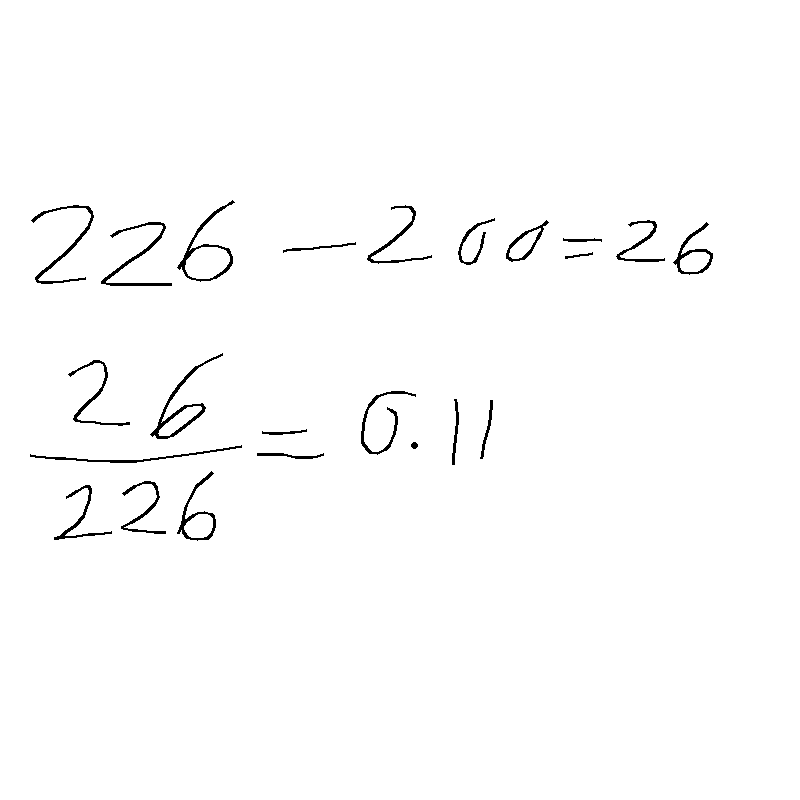 226 - 200 = 26
26/226 = 0.11